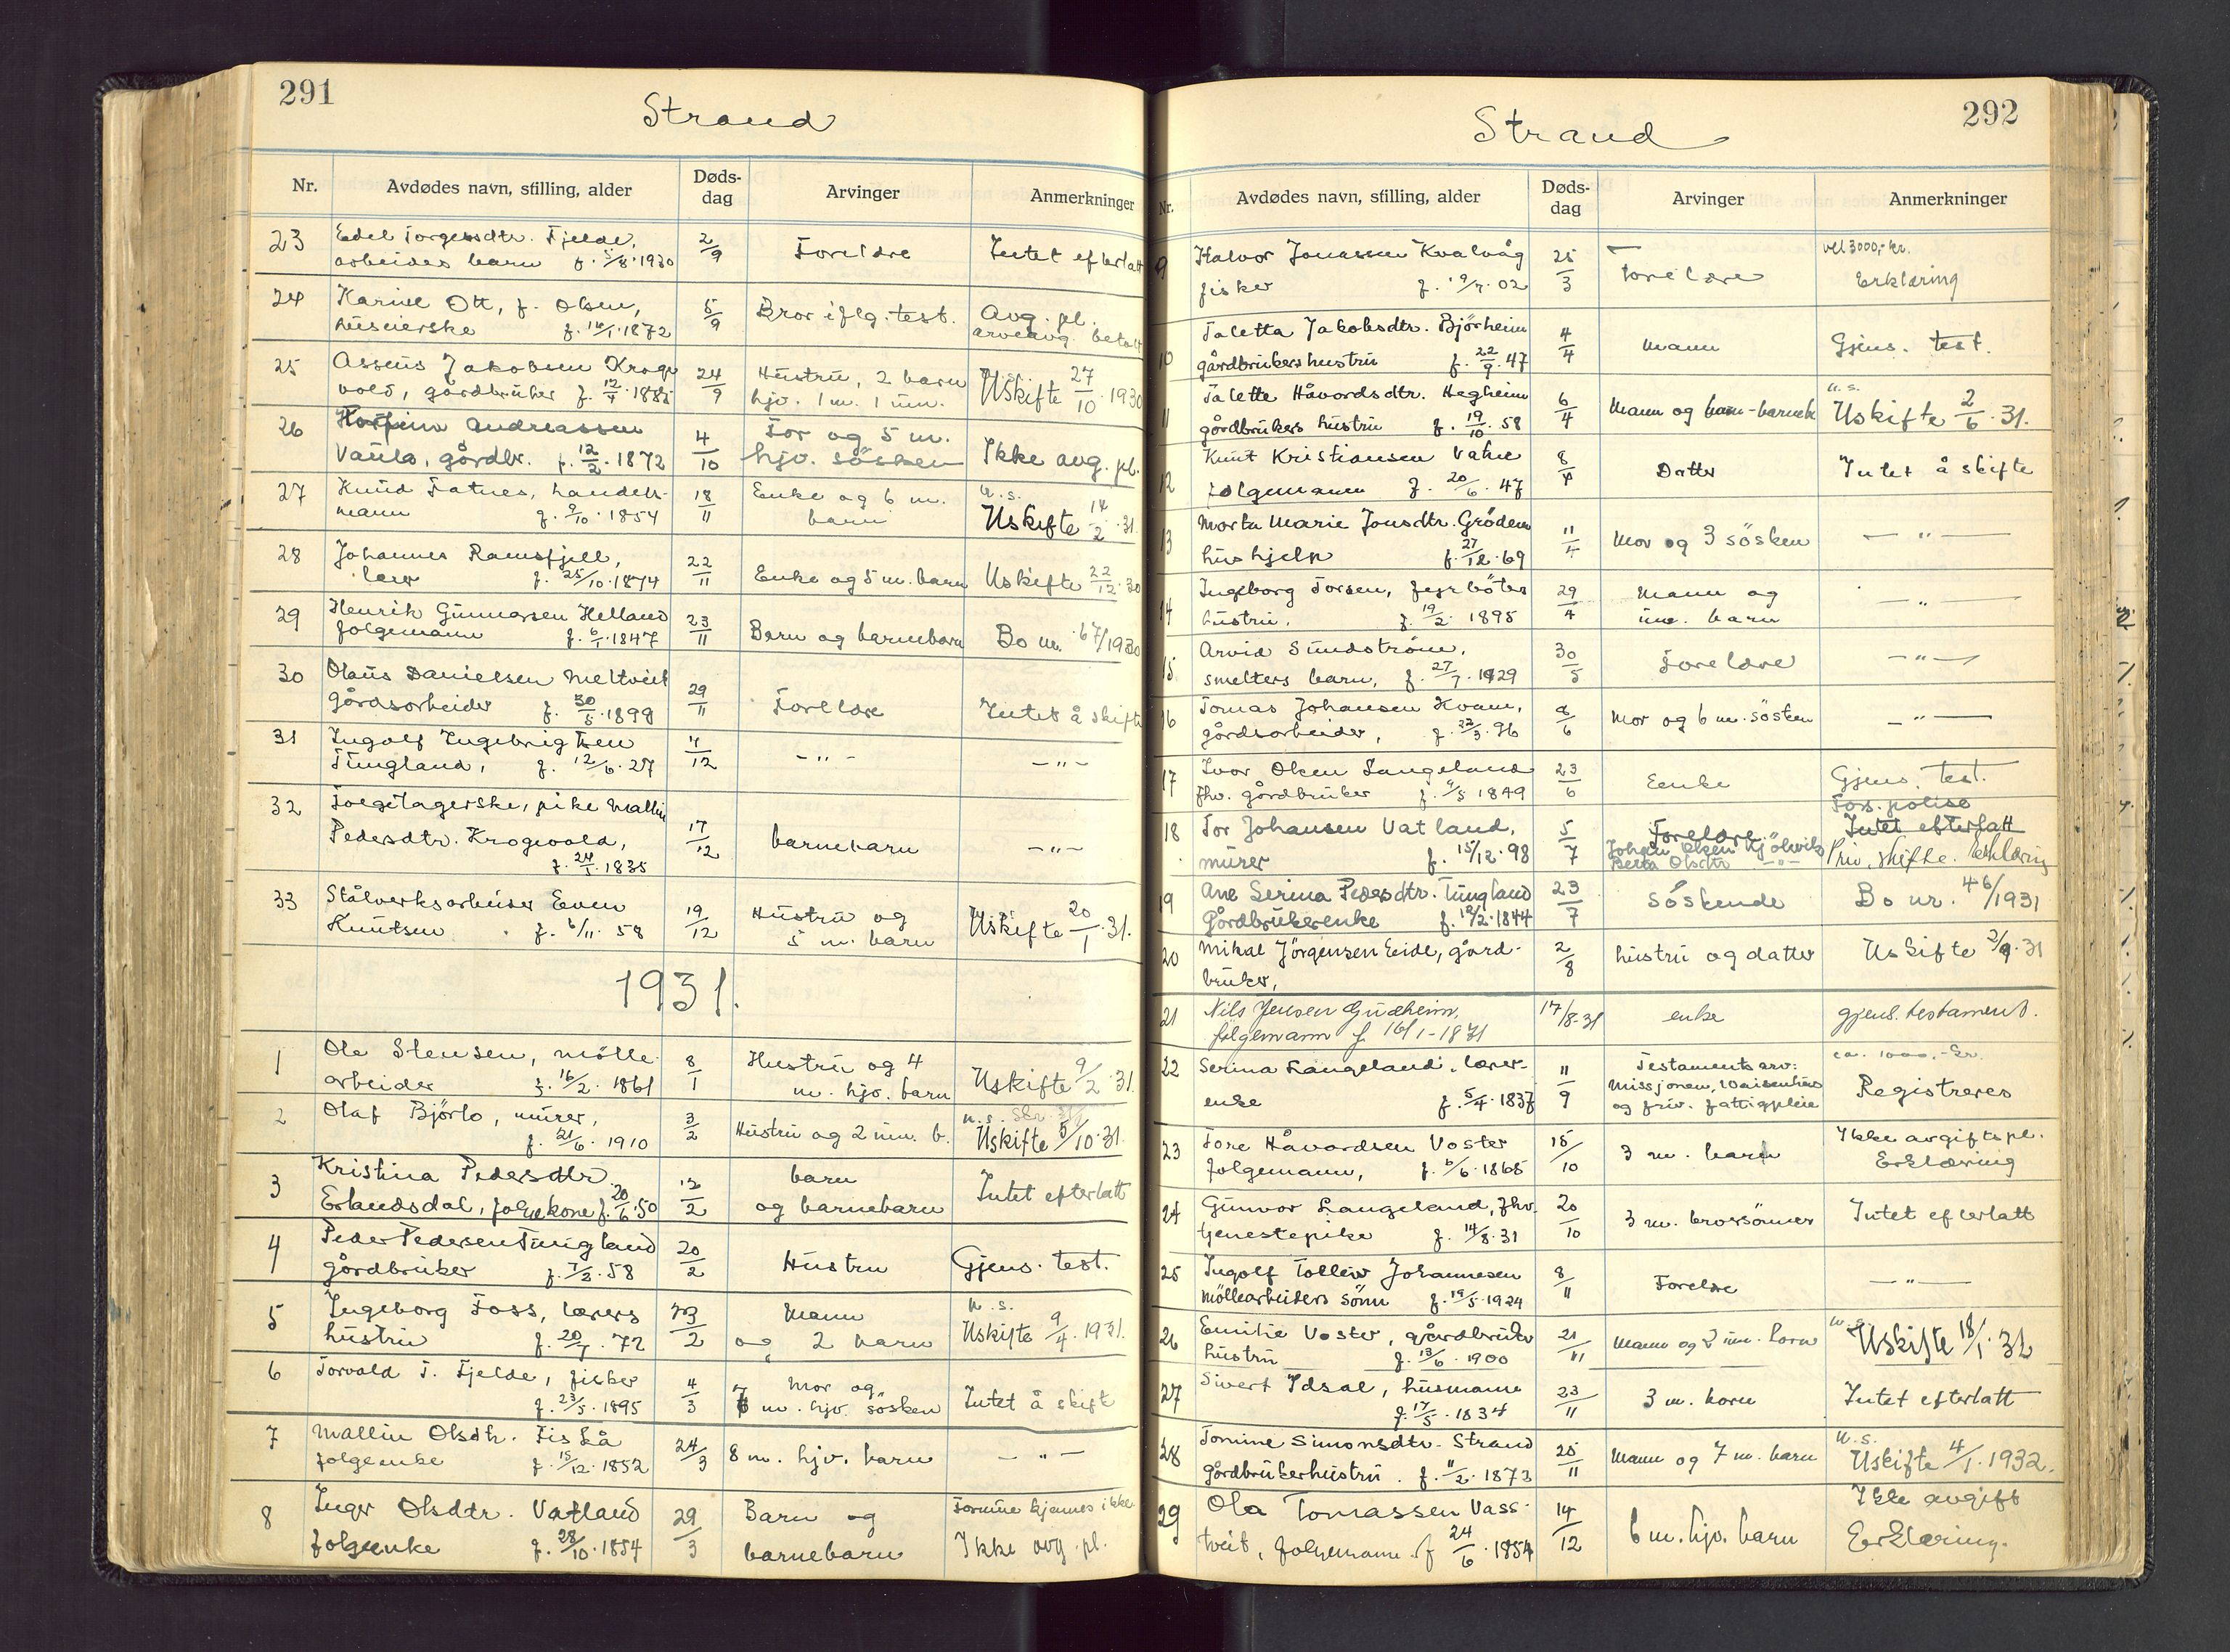 291
Strand
Nr.
Avdødes navn, stilling, alder
Døds-
dag
Arvinger
Anmerkninger
23
Edel Torgersdtr. Fjelde,
arbeiders barn f. 5/8.1930
2/9
Foreldre
Intet efterlatt
24
Karine Ott, f. Olsen,
huseierske f. 16/1.1872
5/9
Bror iflg. test.
Avg. pl.
arveavg. betalt
25
Assens Jakobsen Krog
vold, gårdbruker f. 12/4.1885
24/9
Hustru, 2 barn
hjv. 1 m. 1 um.
Uskifte 27/10 1930
26
Andreassen
Vaula, gårdbr. f. 12/2.1872
4/10
Far og 5 m.
hjv. søsken
Ikke avg. pl.
27
Knud Fatnes, handels-
mann f. 9/10.1854
18/11
Enke og 6 m.
barn
u.s.
Uskifte 14/2.31.
28
Johannes Ramsfjell,
lærer f. 25/10.1874
22/11
Enke og 5 m. barn
Uskifte 22/12.30
29
Henrik Gunnarsen Helland
folgemann f. 6/1.1847
23/11
Barn og barnebarn
Bo nr. 67/1930
30
Olaus Danielsen Meltveit
gårdsarbeider f. 30/5.1899
29/11
Foreldre
Intet å skifte
31
Ingolf Ingebrigtsen
Tungland, f. 12/6.27
4/12
-"-
-"-
32
Forgetagerske, pike Mallin
Pedersdtr. Krogevold,
f. 24/1.1835
17/12
barnebarn
-"-
33
Stålverksarbeider Even
Knutsen f. 6/11.58
19/12
Hustru og
5 m. barn
Uskifte 20/1.31.
1931.
1
Ole Stensen, mølle
arbeider f. 16/2.1861
8/1
Hustru og 4
m. hjv. barn
Uskifte 9/2.31.
2
Olaf Björlo, murer,
f. 21/6.1910
3/2
Hustru og 2 um. b.
u.s.
Uskifte 5/10.31.
3
Kristina Pedersdtr.
Erlandsdal, folgekone f. 20/6.50
12/2
barn
og barnebarn
Intet efterlatt
4
Peder Pedersen Tungland
gårdbruker f. 7/2.58
20/2
Hustru
Gjens. test.
5
Ingeborg Foss, lærers
hustru f. 20/7.72
23/2
Mann
og 2 barn
u.s.
Uskifte 9/4.1931.
6
Torvald T. Fjelde, fisker
f. 23/5.1895
4/3
Mor og
7 m. hjv. søsken
Intet å skift
7
Mallin Olsdtr. Fiskå
folgeenke f. 15/12.1852
24/3
8 m. hjv. barn
-"-
8
Inger Olsdtr. Vatland
folgeenke f. 28/10.1854
29/3
Barn og
barnebarn
Formue kjennes ikke
Ikke avg. pl.
292
Strand
Nr.
Avdødes navn, stilling, alder
Døds-
dag
Arvinger
Anmerkninger
9
Halvor Jonassen Kvalvåg
fisker f. 9/7.02
25/3
Foreldre
vel 3000,- kr.
Erklæring
10
Taletta Jakobsdtr. Björheim
gårdbrukershustru f. 22/9.47
4/4
Mann
Gjens. test.
11
Talette Håvordsdtr. Hegheim
gårdbrukers hustru f. 19/10.58
6/4
Mann og barn-barneb
u.s.
Uskifte 2/6.31.
12
Knut Kristiansen Vatne
folgemann f. 20/6.47
8/4
Datter
Intet å skifte
13
Marta Marie Jonsdtr. Gröden
hushjelp f. 27/12.69
11/4
Mor og 3 søsken
-"-
14
Ingeborg Torsen, fyrböters
hustru. f. 19/2.1895
29/4
Mann og
um. barn
-"-
15
Arvid Sundström,
smelters barn, f. 27/7.1929
30/5
Foreldre
-"-
16
Tomas Johansen Kvam,
gårdsarbeider, f. 22/3.96
8/6
Mor og 6 m. søsken
-"-
17
Ivar Olsen Langeland
fhv. gårdbruker f. 4/5 1849
23/6
Eenke
Gjens. test.
18
Tor Johansen Vatland,
murer f. 15/12.98
5/7
Foreldre
Johan Olsen Kjölevik
Berta Olsdtr -"-
Fors. polise
Intet efterlatt
Priv. skifte. Erklæring
19
Ane Serina Pedersdtr. Tungland
Gårdbrukerenke f. 12/2.1844
23/7
Søskende
Bo nr. 46/1931
20
Mikal Jörgensen Eide, gård-
bruker,
2/8
hustru og datter
Uskifte 2/9.31
21
Nils Jensen Gudheim,
følgemann f. 16/1-1871
17/8-31
enke
gjens. testament.
22
Serina Langeland, lærer-
enke f. 5/4.1837
11/9
Testamentsarv:
Missjonen, Waisenhus
og priv. fattigpleie
ca. 1000,- kr.
Registreres
23
Tore Håvardsen Voster
folgemann, f. 6/6.1865
15/10
3 m. barn
Ikke avgiftspl.
Erklæring
24
Gunvor Langeland, fhv.
tjenestepike f. 14/8.31
20/10
3 m. brorsønner
Intet efterlatt
25
Ingolf Tolleiv Johannesen
möllearbeiders sönn f. 19/5.1924
8/11
Forelde
-"-
26
Emilie Voster, gårdbruker
hustru f. 13/6.1900
21/11
Mann og 2 um. barn
u.s.
Uskifte 18/1.32
27
Sivert Idsal, husmann
f. 17/5.1834
23/11
3 m. barn
Intet efterlatt
28
Tomine Simonsdtr. Strand
gårdbrukerhustru. f. 11/2.1873
25/11
Mann og 7 m. barn
u.s.
Uskifte 4/1.1932.
29
Ola Tomassen Vass-
tveit, folgemann. f 24/6.1854
14/12
6 m. hjv. barn
Ikke avgift
Erklæring.